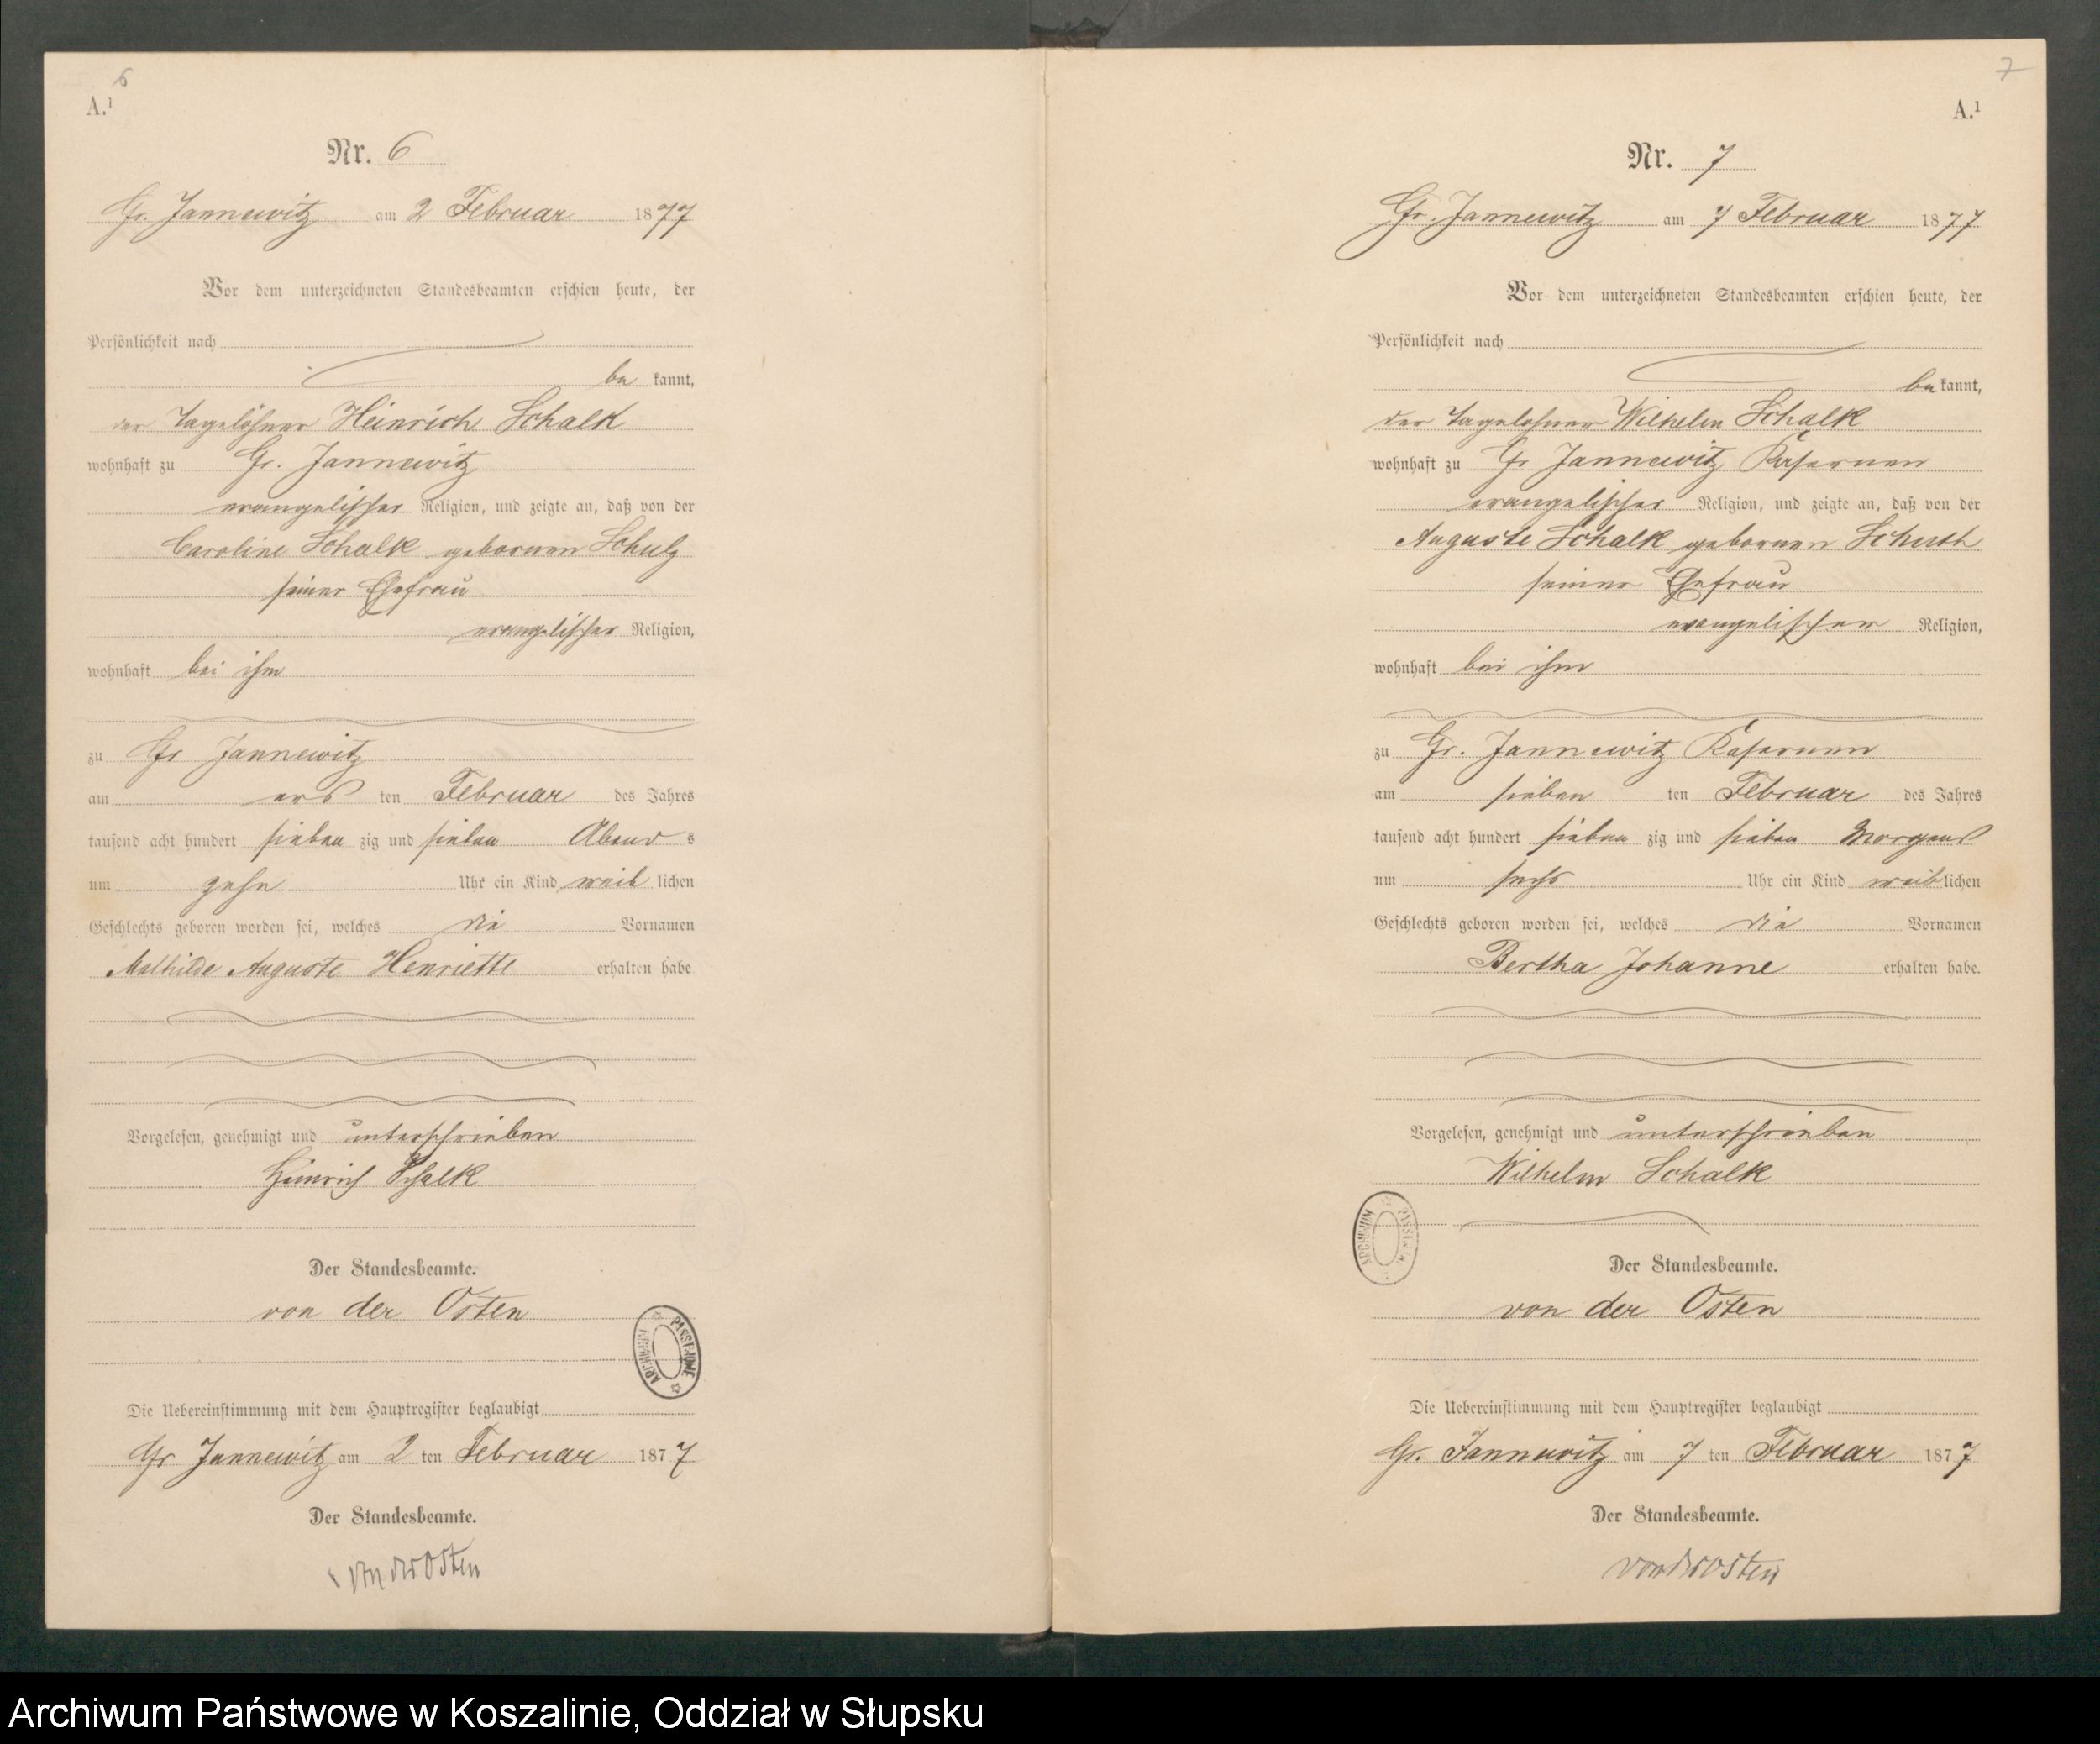 6
A.¹
Nr. 6
Gr. Jannewitz am 2 Februar 1877
Vor dem unterzeichneten Standesbeamten erschien heute, der
Persönlichkeit nach
be kannt,
der Tagelöhner Heinrich Schalk
wohnhaft zu Gr. Jannewitz
evangelischer Religion, und zeigte an, daß von der
Caroline Schalk gebornen Schulz
seiner Ehefrau
evangelischer Religion,
wohnhaft bei ihm
zu Gr Jannewitz
am ers ten Februar des Jahres
tausend acht hundert sieben zig und sieben Abend s
um zehn Uhr ein Kind weib lichen
Geschlechts geboren worden sei, welches die Vornamen
Mathilde Auguste Henriette erhalten habe
Vorgelesen, genehmigt und unterschrieben
Heinrich Schalk
Der Standesbeamte.
von der Osten
ARCHIWUM PAŃSTWOWE
Die Uebereinstimmung mit dem Hauptregister beglaubigt
Gr Jannewitz am 2 ten Februar 1877
Der Standesbeamte.
von der Osten
7
A.¹
Nr. 7
Gr. Jannewitz am 7 Februar 1877
Vor dem unterzeichneten Standesbeamten erschien heute, der
Persönlichkeit nach
be kannt,
der Tagelöhner Wilhelm Schalk
wohnhaft zu Gr Jannewitz Kasernen
evangelischer Religion, und zeigte an, daß von der
Auguste Schalk gebornen
seiner Ehefrau
evangelischer Religion,
wohnhaft bei ihm
zu Gr. Jannewitz Kasernen
am sieben ten Februar des Jahres
tausend acht hundert sieben zig und sieben Morgens
um sechs Uhr ein Kind weiblichen
Geschlechts geboren worden sei, welches die Vornamen
Bertha Johanne erhalten habe.
Vorgelesen, genehmigt und unterschrieben
Wilhelm Schalk
ARCHIWUM PAŃSTWOWE
Der Standesbeamte.
von der Osten
Die Uebereinstimmung mit dem Hauptregister beglaubigt
Gr. Jannewitz am 7 ten Februar 1877
Der Standesbeamte.
von der Osten
Archiwum Państwowe w Koszalinie, Oddział w Słupsku